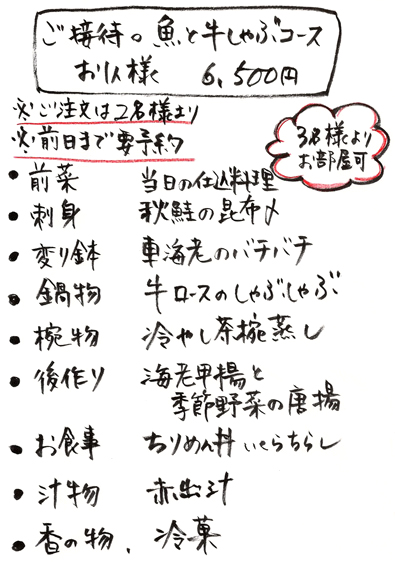 ご接待。魚と牛しゃぶコース
お1人様 6,500円
※ご注文は2名様より
※前日まで要予約
3名様より
お部屋可
• 前菜 当日の仕込料理
• 刺身 秋鮭の昆布〆
• 変り鉢 車海老のバチバチ
• 鍋物 牛ロースのしゃぶしゃぶ
• 椀物 冷やし茶椀蒸し
• 後作り 海老甲揚と
季節野菜の唐揚
• お食事 ちりめん丼 いくらちらし
• 汁物 赤出汁
• 香の物、冷菓